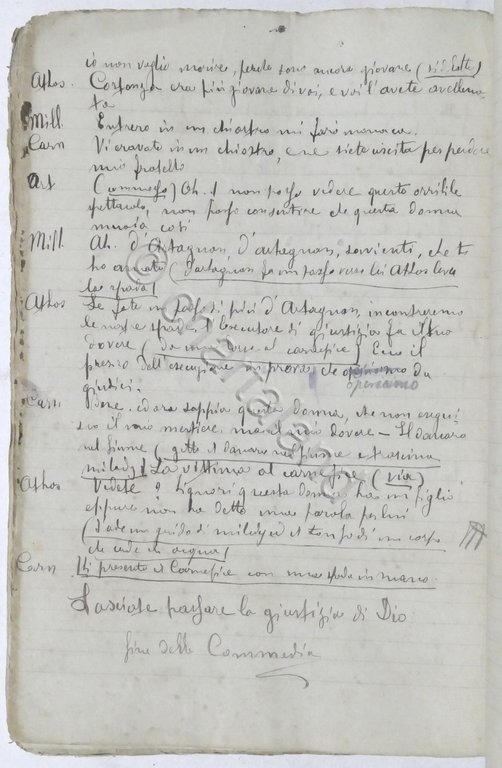 io non voglio morire, perche sono ancora giovane (
Athos. Costanza era più giovane di voi, e voi l'avete avvelena-
ta
Mill. Entrerò in un chiostro mi farò monaca.
Carn Vi eravate in un chiostro, e ne siete uscita per perdere
mio fratello
Art (commosso) Oh! non posso vedere questo orribile
spettacolo, non posso consentire che questa donna
muoia così
Mill. Ah. d'Artagnan d'artagnan, sovvienti, che ti
ho amato (d'artagnan fa un passo verso lei Athos leva
la spada)
Athos Se fate un passo di più d'Artagnan, incontreremo
le nostre spade. l'esecutore di giustizia fa il tuo
dovere (da una borsa al carnefice) Ecco il
prezzo dell'esecuzione un prova, che operiamo da
operiamo
giudici.
Carn ed ora sappia questa donna, che non esegui-
sco il mio mestiere ma il mio dovere – Il danaro
nel fiume (getta il danaro nel fiume e trascina
milady) La vittima al carnefice (via)
Athos Vedete o Signori questa donna ha un figlio
eppure non ha detto una parola per lui
(s'ode un grido di milady ed il tonfo di un corpo
che cade in acqua)
Carn. Si presenta il Carnefice con una spada in mano.
Lasciate passare la giustizia di Dio
fine della Commedia
© Maremagnum